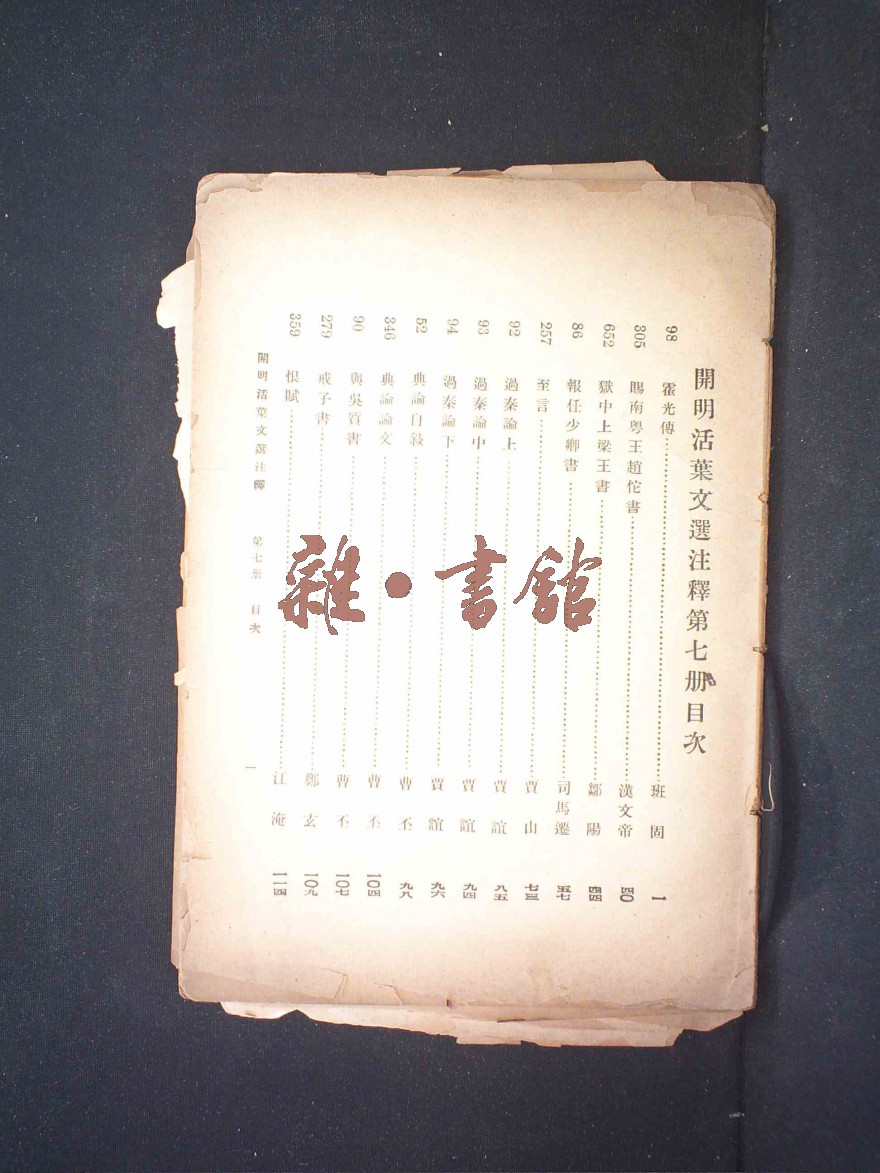 開明活葉文選注釋第七册目次
98 霍光傳 班固 一
305 賜南粵王趙佗書 漢文帝 四〇
652 獄中上梁王書 鄒陽 四四
86 報任少卿書 司馬遷 五七
257 至言 賈山 七三
92 過秦論上 賈誼 八五
93 過秦論中 賈誼 九四
94 過秦論下 賈誼 九六
52 典論自敍 曹丕 九八
346 典論論文 曹丕 一〇四
90 與吳質書 曹丕 一〇七
279 戒子書 鄭玄 一〇九
359 恨賦 江淹 一一四
開明活葉文選注釋 第七册 目次 一
雜·書館